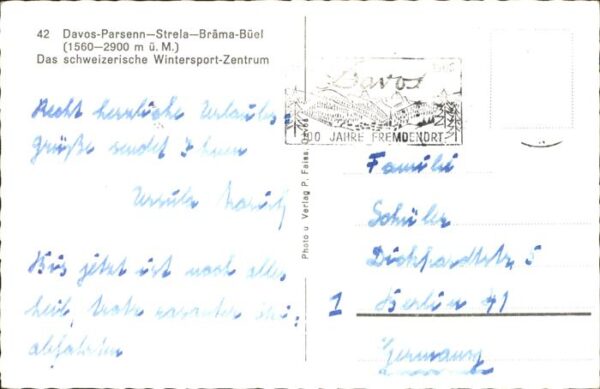 42 Davos-Parsenn—Strela—Brâma-Büel
(1560—2900 m ü. M.)
Das schweizerische Wintersport-Zentrum
Davos
100 JAHRE FREMDENORT
Photo u Verlag P. Faiss, Davos
Recht herzliche Urlaubs-
Grüße sendet Ihnen
Ursula
Bis jetzt ist noch alles
heil, trotz rasanter Ski-
abfahrten
Familie
Schüler
Dickhardtstr. 5
1 Berlin 41
Germany